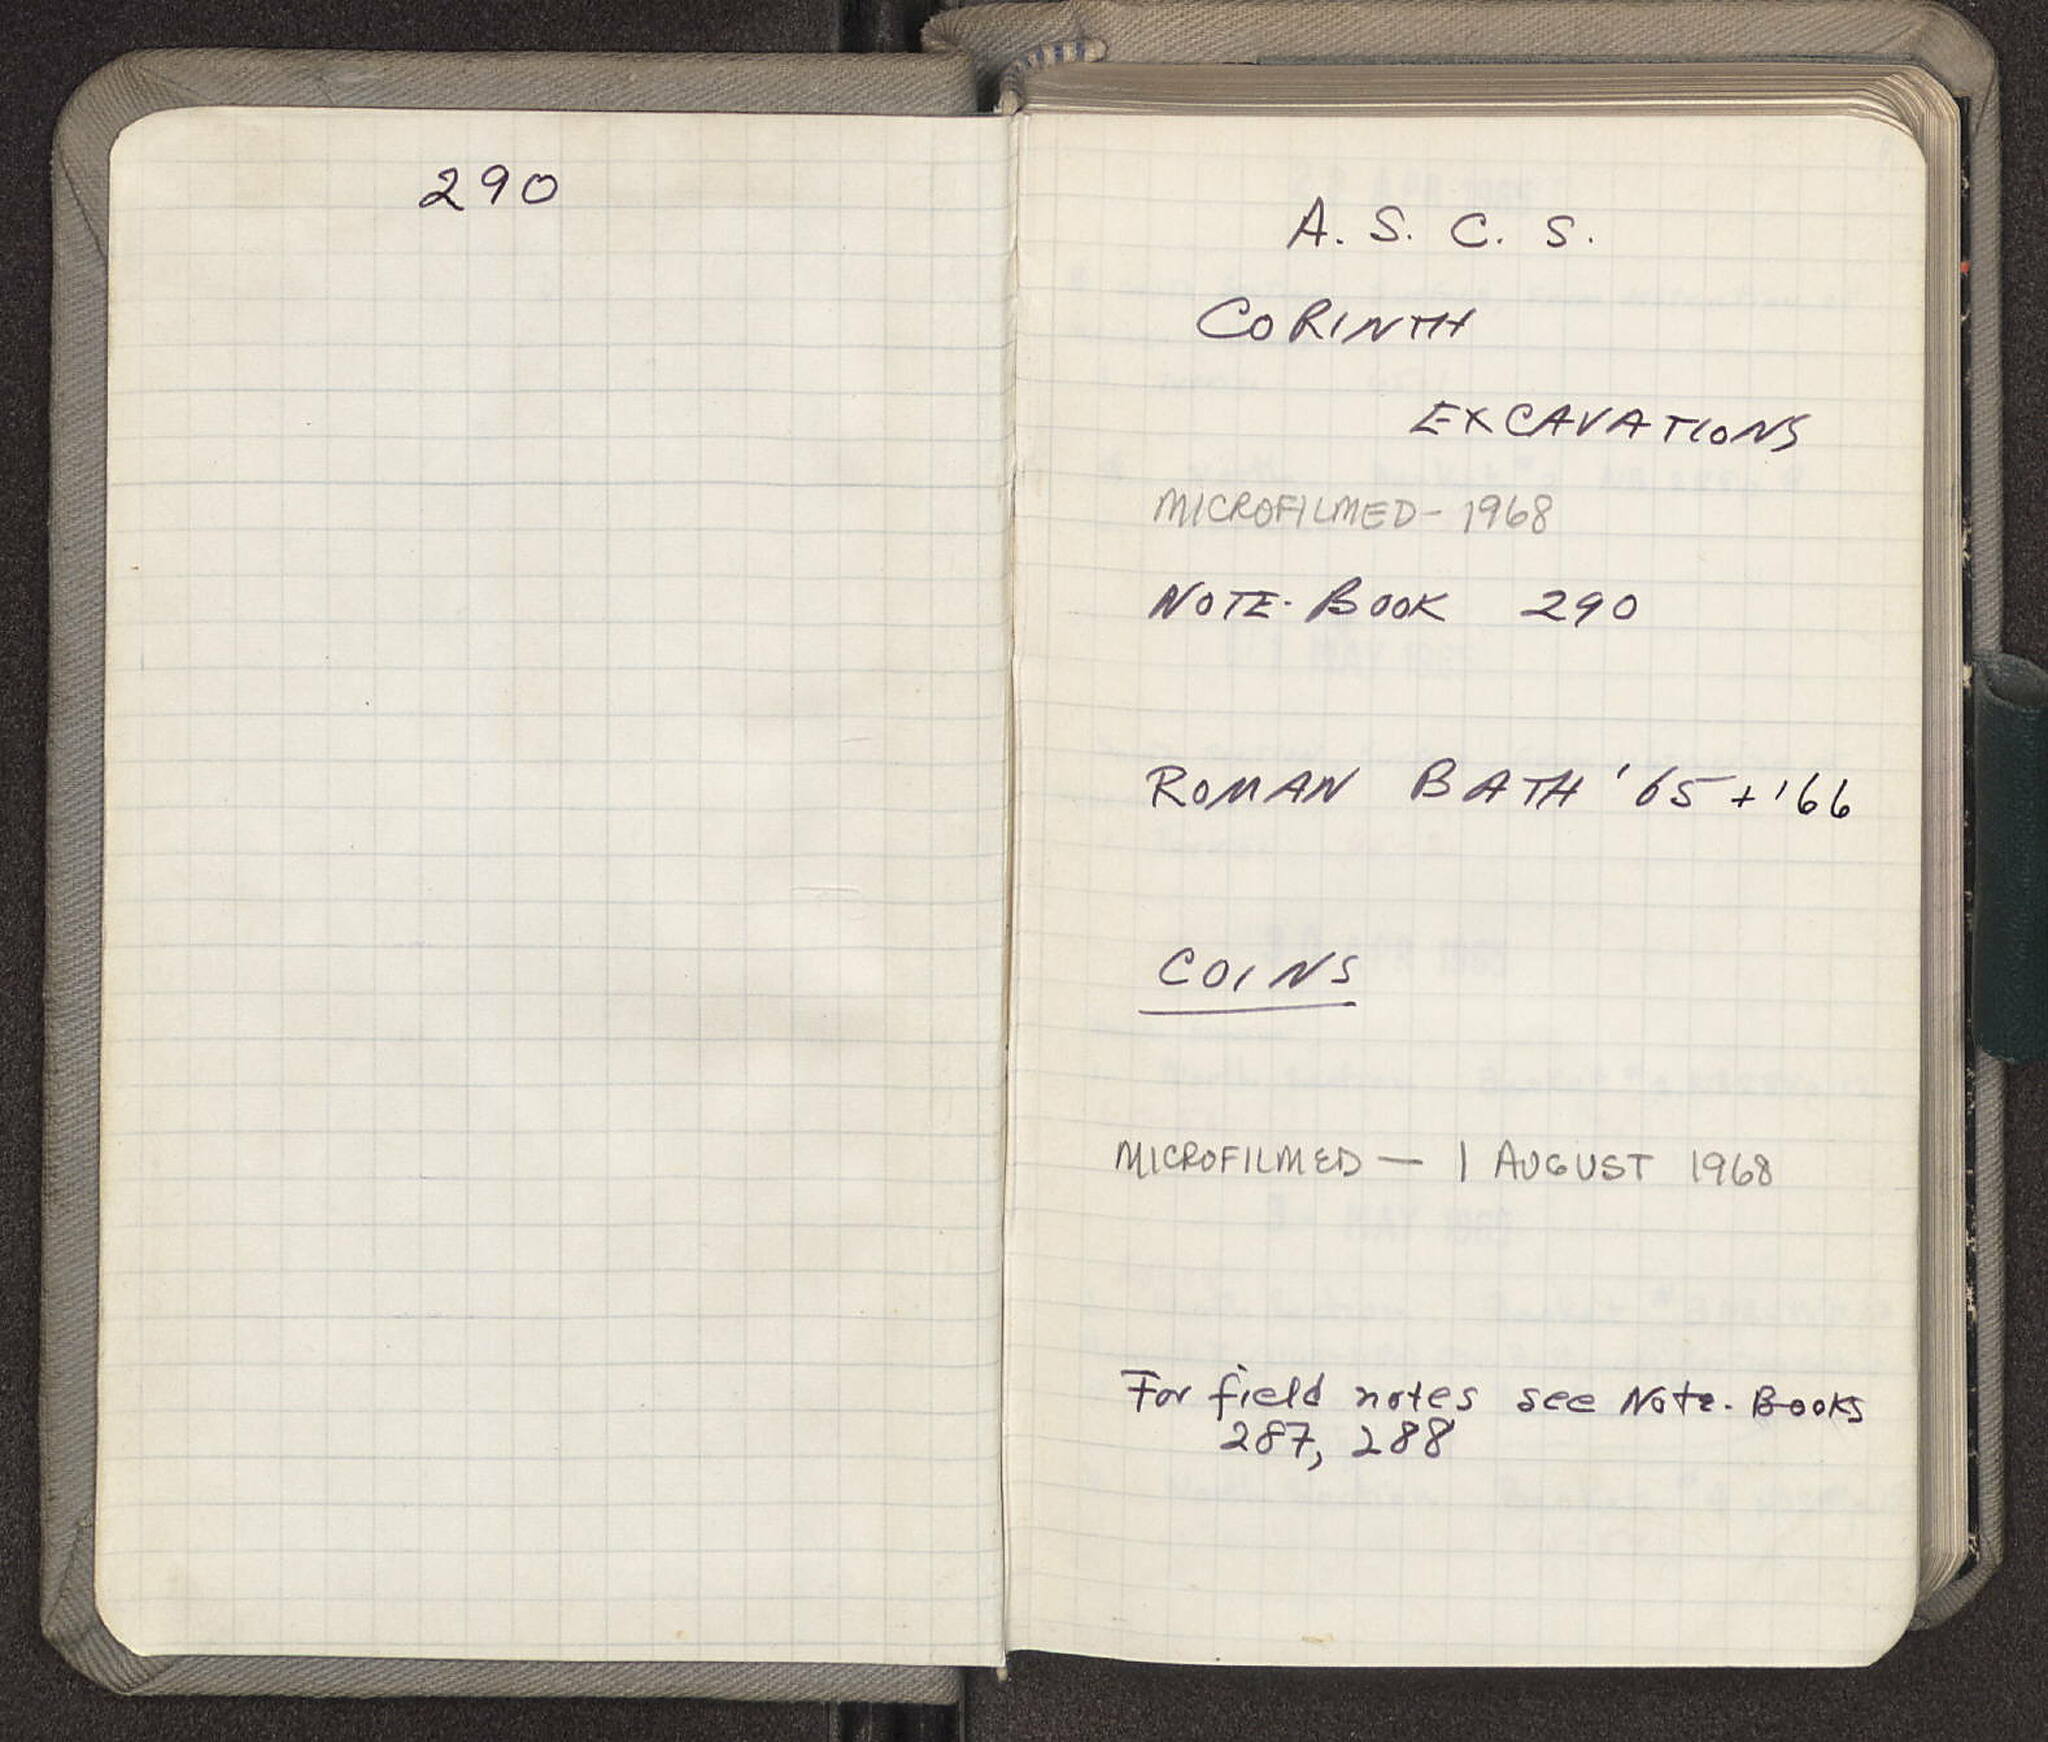 290
A. S. C. S.
CORINTH
EXCAVATIONS
MICROFILMED - 1968
NOTE-BOOK 290
ROMAN BATH '65 + '66
COINS
MICROFILMED — 1 AUGUST 1968
For field notes see Note-Books
287, 288